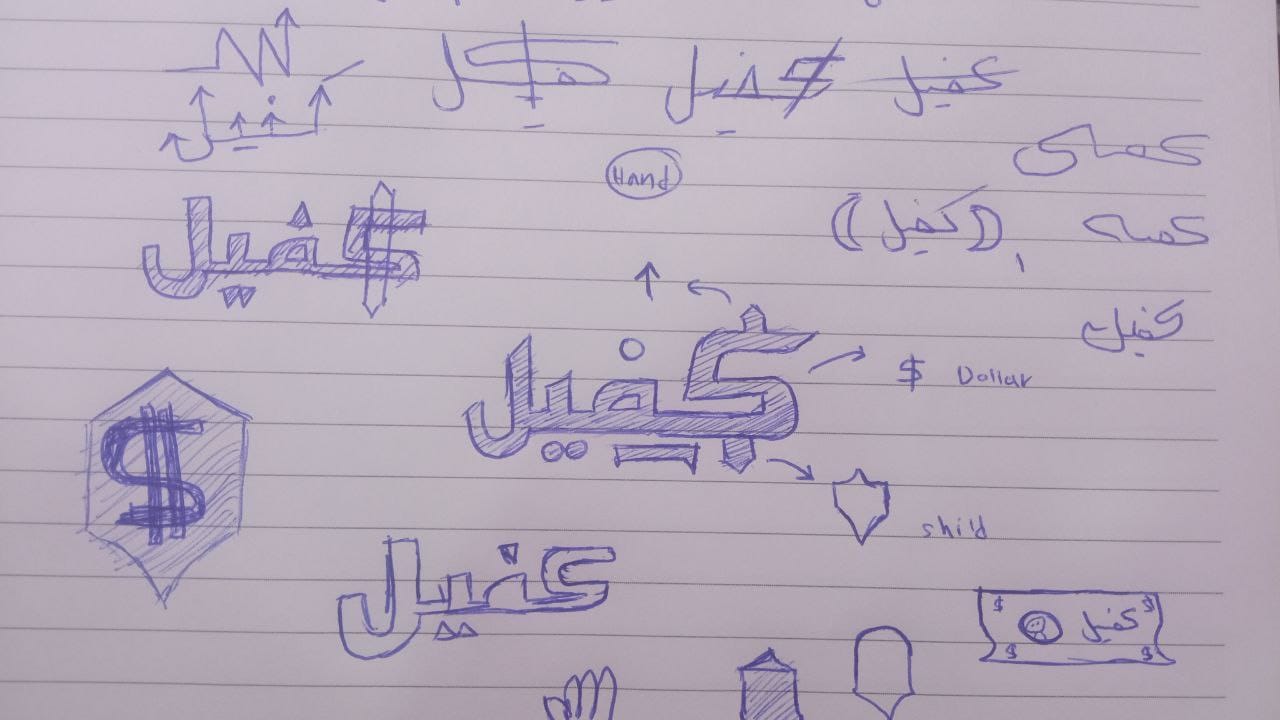 كفيل كفيل كفيل
Hand
((كفيل))
كفيل
كفيل
كفيل
$ Dollar
$
shild
كفيل
$ $
كفيل
$ $